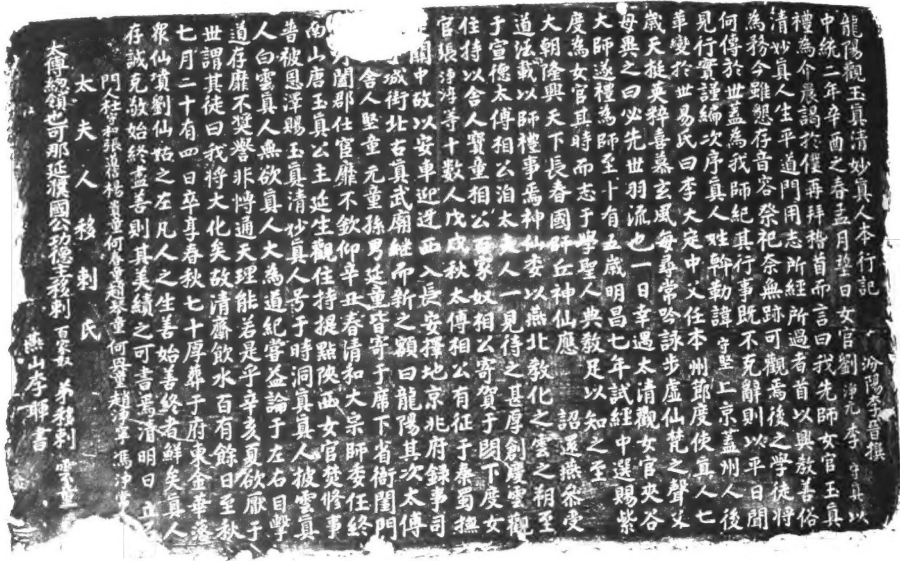 龍陽觀玉真清妙真人本行記
汾陽李晉撰
中統二年辛酉之春孟月望日女官劉淨元李守真以
禮為介晨謁於僕再拜稽首而言曰我先師女官玉真
清妙真人生平道門用志所經所過者首以興教善俗
為務今雖憩存音容祭祀奈無跡可觀焉後之學徒將
何傳於世蓋為我師紀其行事既不克辭則以平日聞
見行實謹編次序真人姓斡勒諱守堅上京蓋州人後
革變於世易氏曰李大定中父任本州節度使真人七
歲天挺英粹喜慕玄風每尋常吟詠步虛仙梵之聲父
母異之曰必先世羽流也一日幸遇太清觀女官夾谷
大師遂禮為師至十有五歲明昌七年試經中選賜紫
度為女官其時而志于學聖人典教足以知之至
大朝隆興天下長春國師丘神仙應詔還燕參受
道法載以師禮事焉神仙委以燕北教化之雲之朔至
于宣德太傅相公洎太夫人一見待之甚厚創慶雲觀
住持以舍人寶童相公百家奴相公寄賀于門下度女
官張淨淳等十數人戊戌秋太傅相公有征于秦蜀撫
關中故以安車迎迓西入長安擇地京兆府錄事司
城街北古真武廟繼而新之額曰龍陽其次太傅
舍人堅童元童孫男延童皆寄于席下省衙閨門
閫郡仕官靡不欽仰辛丑春清和大宗師委任終
南山唐玉真公主延生觀住持提點陝西女官焚修事
普被恩澤賜玉真清妙真人号于時洞真真人披雲真
人白雲真人無欲真人大為道紀嘗益論于左右目擊
道存靡不獎譽非博通天理能若是乎辛亥夏欲厭于
世謂其徒曰我將大化矣故清齋飲水百有餘日至秋
七月二十有四日卒享春秋七十厚葬于府東金華落
眾仙墳劉仙姑之左凡人之生善始善終者鮮矣真人
存誠克敬始終盡善則其美績之可書焉清明日立
太夫人移剌氏
太傅總領也可那延濮國公功德主移剌百家奴弟移剌雲童
燕山李聃書